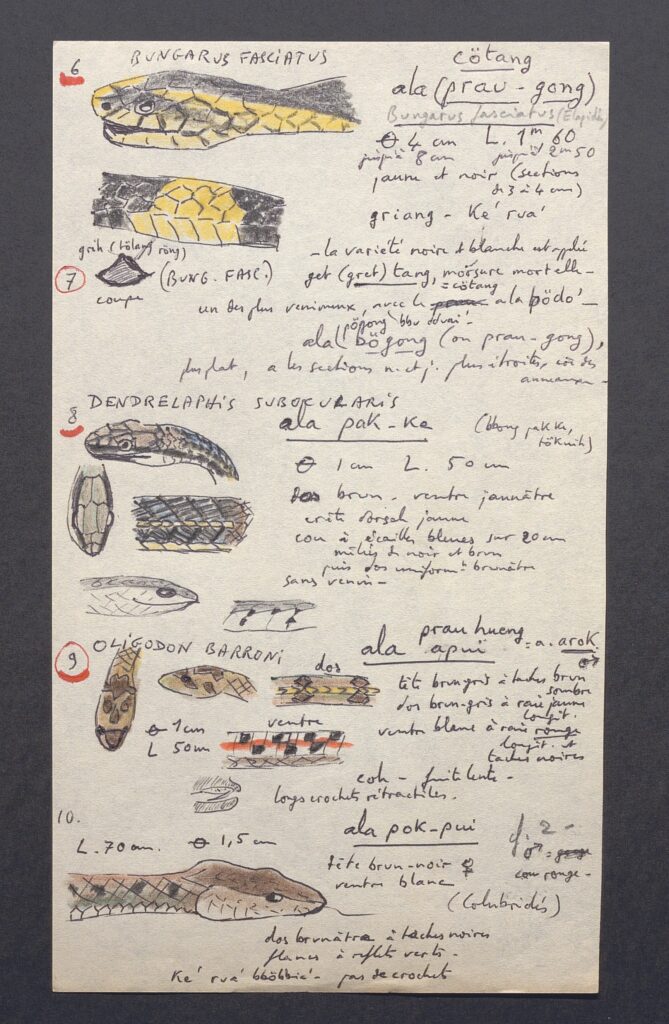 6
BUNGARUS FASCIATUS
cötang
ala (prau - gong)
Bungarus fasciatus (Elapidés)
Ꝋ 4 cm L. 1m 60
jusqu'à 8 cm jusqu'à 2m50
jaune et noir (sections
de 3 à 4 cm)
griang - Ké' ruá'
grih (tölang röng)
7
coupe
(BUNG. FASC.)
- la variété noire et blanche est
get (gret) tang, mörsure mortelle -
= cötang
un des plus venimeux, avec le ala bödo' -
ala (bögong (ou prau - gong),
plus plat, a les sections n. et j. plus étroites
anneaux -
8
DENDRELAPHIS SUBOCULARIS
ala pak - ke
Ꝋ 1 cm L. 50 cm
dos brun - ventre jaunâtre
crête dorsale jaune
cou à écailles bleues sur 20 cm
mêlées de noir et brun
puis dos uniformt brunâtre
sans venin -
9
OLIGODON BARRONI
ala prau hueng
apui = a. arok
♂
dos
tête brun-gris à taches brun
sombre
dos brun-gris à raie jaune
longit.
ventre blanc à raie rouge
longit. et
taches noires
Ꝋ 1 cm
L 50 cm
ventre
coh - fuite lente -
longs crochets rétractiles.
10.
L. 70 cm. Ꝋ 1,5 cm
ala pok - pui
f. 2 -
♂ =
cou rouge -
tête brun-noir ♀
ventre blanc
(Colubridés)
dos brunâtre à taches noires
flancs à reflets verts -
Ké' ruá' - pas de crochets